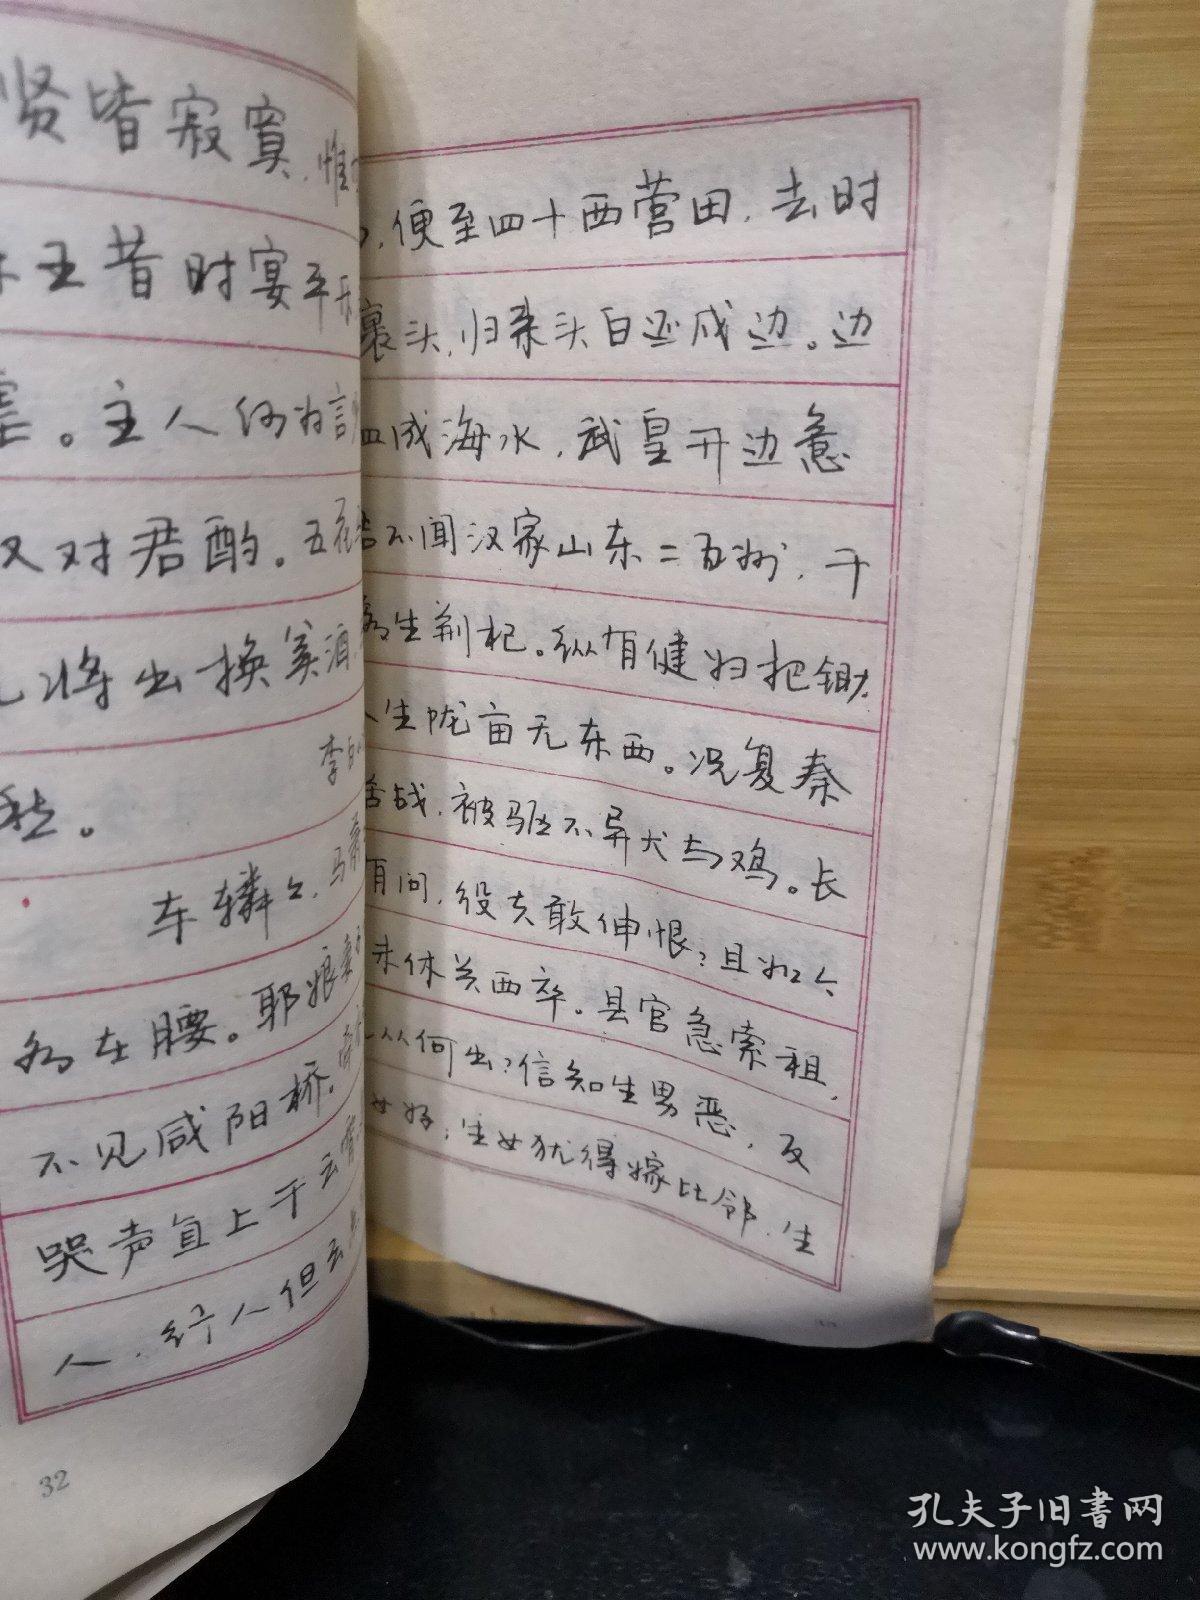 贤皆寂寞，惟
王昔时宴平乐
。主人何为言
对君酌。五花
将出换美酒
愁。
李白
车辚々，马萧
各在腰。耶娘妻
不见咸阳桥。牵
哭声直上干云霄
人，行人但云
32
，便至四十西营田，去时
裹头，归来头白还戍边。边
血成海水，武皇开边意
不闻汉家山东二百州，千
生荆杞。纵有健妇把锄
生陇亩无东西。况复秦
苦战，被驱不异犬与鸡。长
有问，役夫敢伸恨？且如今
未休关西卒。县官急索租，
从何出？信知生男恶，反
女好；生女犹得嫁比邻，生
孔夫子旧书网
www.kongfz.com